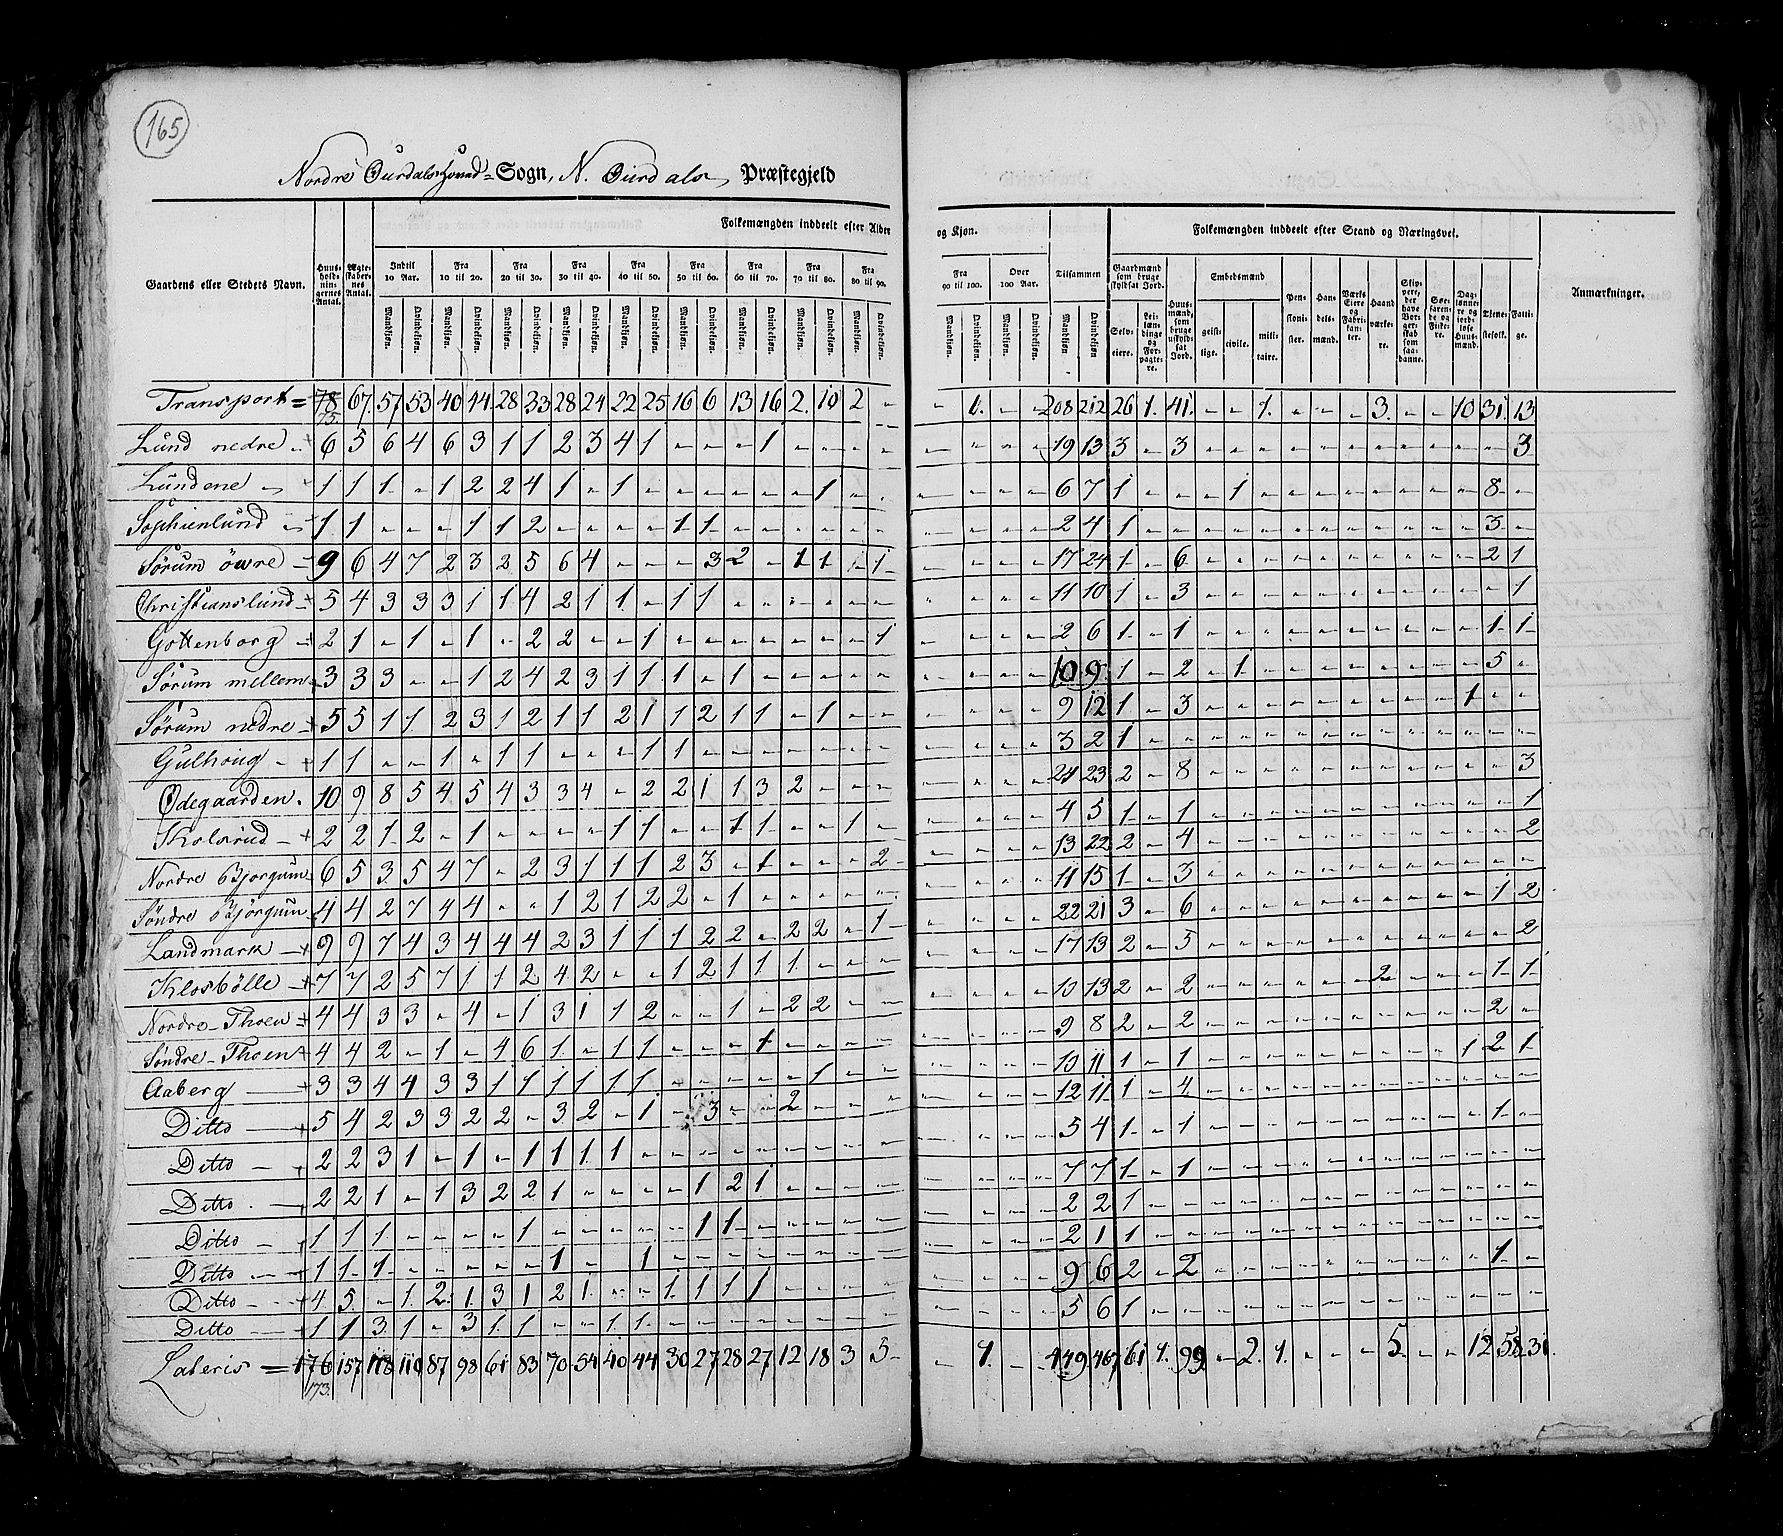 165
Nordre Ourdals Hoved-Sogn, N. Ourdals Præstegjeld
Folkemængden inddeelt efter Alder og Kjøn. Folkemængden inddeelt efter Stand og Næringsvei.
Gaardens eller Stedets Navn. Huus-holdnin-gernes Antal. Ægte-skaber-nes Antal. Indtil 10 Aar. Fra 10 til 20. Fra 20 til 30. Fra 30 til 40. Fra 40 til 50. Fra 50 til 60. Fra 60 til 70. Fra 70 til 80. Fra 80 til 90. Fra 90 til 100. Over 100 Aar. Tilsammen Anmærkninger.
Mandkjøn. Qvindekjøn.
Gaardmænd som bruge skyldsat Jord. Selv-eiere. Lei-lændinge og For-pagte-re. Huus-mænd, som bruge uskyld-sat Jord. Embedsmænd geist-lige. civile. mili-taire. Pen-sioni-ster. Han-dels-mænd. Værks Eiere og Fabri-kan-ter. Haand-værke-re. Skip-pere, der have Bor-ger-skab som saa-danne. Søe-farende og Fiske-re. Dag-lønne-re og jord-løse Huus-mænd. Tjene-stefolk. Fatti-ge.
Transport = 78 73. 67 57 53 40 44 28 33 28 24 22 25 16 6 13 16 2 10 2 - - 1. - - 208 212 26 1. 41. - - 1. - - - 3. - - 10 31. 13
Lund nedre - 6 5 6 4 6 3 1 1 2 3 4 1 - - - 1 - - - - - - - - 19 13 3 - 3 - - - - - - - - - - - 3
Lundene - 1 1 1 - 1 2 2 4 1 - 1 - - - - - - 1 - - - - - - 6 7 1 - - - 1 - - - - - - - - 8 -
Sophienlund - 1 1 - - - 1 1 2 - - - - 1 1 - - - - - - - - - - 2 4 1 - - - - - - - - - - - - 3 -
Sørum öwre - 9 6 4 7 2 3 2 5 6 4 - - - 3 2 - 1 1 - 1 - - - - 17 24 1 - 6 - - - - - - - - - - 2 1
Christianslund - 5 4 3 3 3 1 1 4 2 1 1 - 1 1 - - - - - - - - - - 11 10 1 - 3 - - - - - - - - - - - 1
Gottenborg - 2 1 - 1 - 1 - 2 2 - - 1 - - - - - - - 1 - - - - 2 6 1 - 1 - - - - - - - - - - 1 1
Sørum mellem 3 3 3 - - 1 2 4 2 3 1 1 1 - 1 - - - - - - - - - 10 9 1 - 2 - 1 - - - - - - - - 5 -
Sørum nedre - 5 5 1 1 2 3 1 2 1 1 2 1 1 2 1 1 - 1 - - - - - - 9 12 1 - 3 - - - - - - - - - 1 - -
Gulhoug - 1 1 - - 1 - 1 1 - - - 1 1 - - - - - - - - - - - 3 2 1 - - - - - - - - - - - - - -
Ødegaarden. 10 9 8 5 4 5 4 3 3 4 - 2 2 1 1 3 2 - - - - - - - 24 23 2 - 8 - - - - - - - - - - - 3
Kolsrud - 2 2 1 2 - 1 - - - - 1 1 - - 1 1 - - 1 - - - - - 4 5 1 - 1 - - - - - - - - - - - 1
Nordre Bjorgum 6 5 3 5 4 7 - 2 3 1 1 1 2 3 - 1 - - - 2 - - - - 13 22 2 - 4 - - - - - - - - - - - 2
Søndre Bjørgum 4 4 2 7 4 4 - - 1 2 1 2 2 - 1 - - - - - - - - - 11 15 1 - 3 - - - - - - - - - - - -
Landmark - 9 9 7 4 3 4 4 4 2 3 1 1 1 2 2 - 2 2 - 1 - - - - 22 21 3 - 6 - - - - - - - - - - 1 2
Klosbölle - 7 7 2 5 7 1 1 2 4 2 - - 1 2 1 1 1 - - - - - - - 17 13 2 - 5 - - - - - - - - - - - 2
Nordre-Thoen 4 4 3 3 - 4 - 1 3 1 1 2 - - 1 - 2 2 - - - - - - 10 13 2 - 2 - - - - - - 2 - - - 1 1
Søndre-Thoen 4 4 2 - 1 - 4 6 1 - 1 1 - - - 1 - - - - - - - - 9 8 2 - 2 - - - - - - - - - - 2 -
Aaberg - 3 3 4 4 3 3 1 1 1 1 1 1 - - - - - 1 - - - - - - 10 11 1 - 1 - - - - - - - - - 1 2 1
Ditto - 5 4 2 3 3 2 2 - 3 2 - 1 - 3 - - 2 - - - - - - - 12 11 1 - 4 - - - - - - - - - - - -
Ditto - 2 2 3 1 - 1 - 1 1 1 1 - - - - - - - - - - - - - 5 4 1 - 1 - - - - - - - - - - 1 -
Ditto - 2 2 1 - 1 3 2 2 1 - - - - 1 2 1 - - - - - - - - 7 7 1 - 1 - - - - - - - - - - - -
Ditto - 1 1 1 - - - - 1 - - - - - 1 1 - - - - - - - - - 2 2 1 - - - - - - - - - - - - - -
Ditto - 1 1 1 - - - - - 1 - - 1 - - - - - - - - - - - - 2 1 1 - - - - - - - - - - - - - -
Ditto - 4 5 - 1 2 1 3 1 2 1 - - 1 1 1 1 - - - - - - - - 9 6 2 - 2 - - - - - - - - - - 1 -
Ditto - 1 1 3 1 - 3 1 1 - - 1 1 - - - - - - - - - - - - 5 6 1 - - - - - - - - - - - - - -
Lateris = 176 173. 157 118 110 87 98 61 83 70 54 40 44 30 27 28 27 12 18 3 5 - - 1. - - 449 467 61 1. 99 - 2. 1. - - - 5. - - 12 58 31